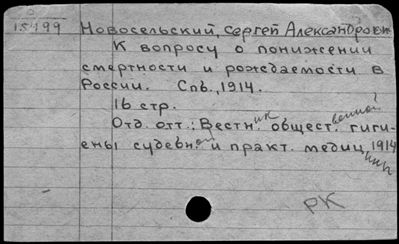 О
15499
Новосельский, Сергей Александрович
К вопросу о понижении
смертности и рождаемости в
России. Спб., 1914.
16 стр.
Отд. отт.: Вестник общественной гиги-
ены судебной и практ. медиц. 1914
июнь
РК